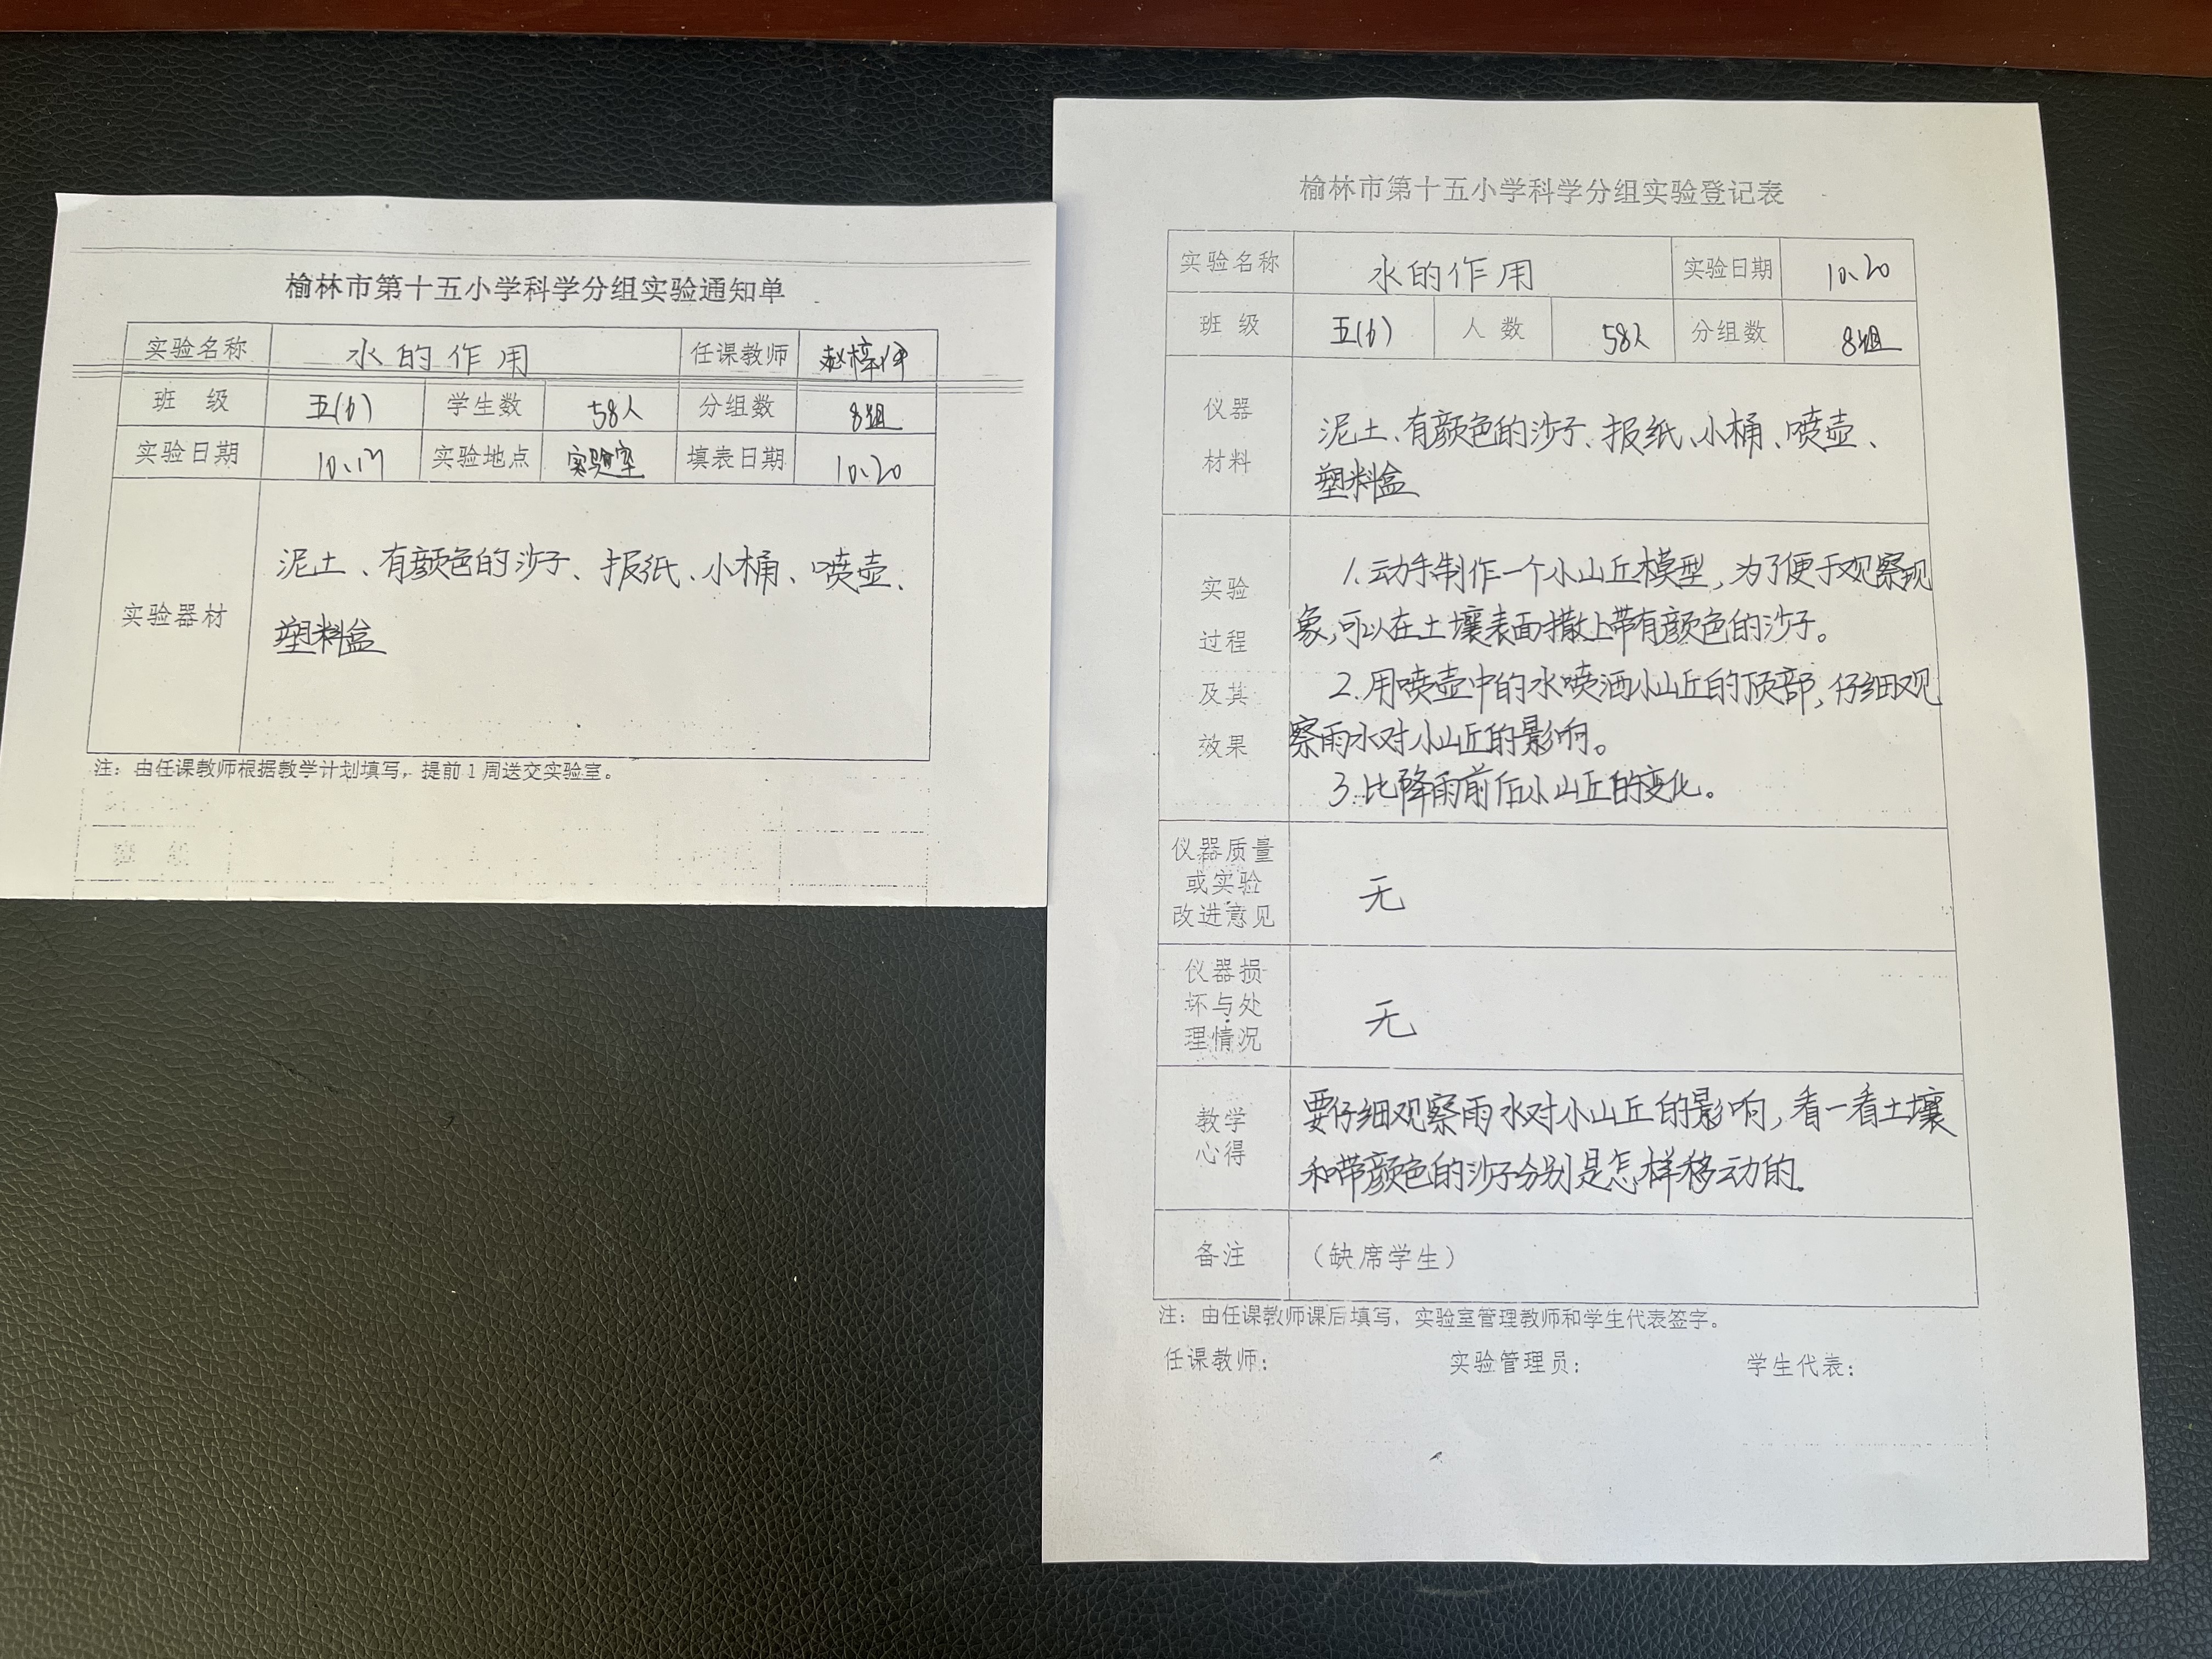 榆林市第十五小学科学分组实验通知单
实验名称 水的作用 任课教师
班 级 五(6) 学生数 58人 分组数 8组
实验日期 10、17 实验地点 实验室 填表日期 10、20
实验器材
泥土、有颜色的沙子、报纸、小桶、喷壶、
塑料盒
注：由任课教师根据教学计划填写，提前1周送交实验室。
班 级
榆林市第十五小学科学分组实验登记表
实验名称 水的作用 实验日期 10、20
班 级 五(6) 人 数 58人 分组数 8组
仪器
材料
泥土、有颜色的沙子、报纸、小桶、喷壶、
塑料盒
实验
过程
及其
效果
1.动手制作一个小山丘模型，为了便于观察现
象，可以在土壤表面撒上带有颜色的沙子。
2.用喷壶中的水喷洒小山丘的顶部，仔细观
察雨水对小山丘的影响。
3.比降雨前后小山丘的变化。
仪器质量
或实验
改进意见
无
仪器损
坏与处
理情况
无
教学
心得
要仔细观察雨水对小山丘的影响，看一看土壤
和带颜色的沙子分别是怎样移动的。
备注 （缺席学生）
注：由任课教师课后填写，实验室管理教师和学生代表签字。
任课教师： 实验管理员： 学生代表：